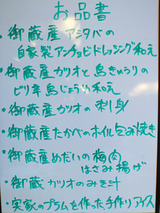 お品書
・御蔵産アシタバの
自家製アンチョビドレッシング和え
・御蔵産カツオと島きゅうりの
ピリ辛島じょうゆ和え
・御蔵産カツオの刺身
・御蔵産たかべのホイル包み焼き
・御蔵産めだいの梅肉
はさみ揚げ
・御蔵カツオのみそ汁
・実家のプラムを使った手作りアイス